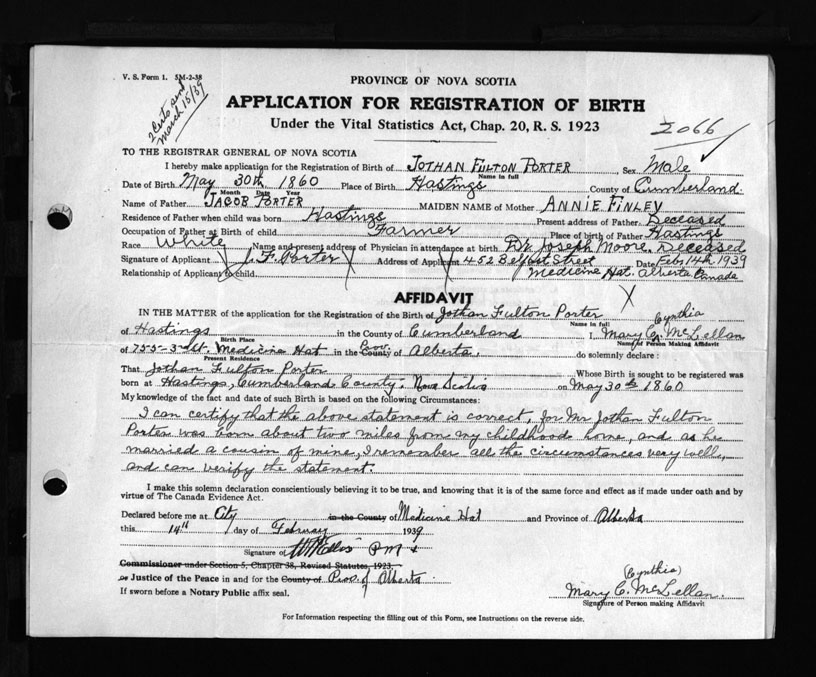 V. S. Form 1. 5M-2-38
2 Certs send
March 15/39
PROVINCE OF NOVA SCOTIA
APPLICATION FOR REGISTRATION OF BIRTH
Under the Vital Statistics Act, Chap. 20, R. S. 1923
2066
TO THE REGISTRAR GENERAL OF NOVA SCOTIA
I hereby make application for the Registration of Birth of JOTHAN FULTON PORTER Sex Male
Name in full
Date of Birth May 30th 1860 Place of Birth Hastings County of Cumberland
Month Date Year
Name of Father JACOB PORTER MAIDEN NAME of Mother ANNIE FINLEY
Residence of Father when child was born Hastings Present address of Father Deceased
Occupation of Father at Birth of child Farmer Place of birth of Father Hastings
Race White Name and present address of Physician in attendance at birth Dr. Joseph Moore. Deceased
Signature of Applicant J. F. Porter Address of Applicant 452 Belfast Street Date Feb, 14th 1939
Relationship of Applicant to child Medicine Hat. Alberta Canada
AFFIDAVIT
IN THE MATTER of the application for the Registration of the Birth of Jothan Fulton Porter
Name in full
Cynthia
of Hastings in the County of Cumberland I, Mary C. McLellan
Birth Place Name of Person Making Affidavit
of 755-3rd St. Medicine Hat in the County of Prov. Alberta. do solemnly declare:
Present Residence
That Jothan Fulton Porter Whose Birth is sought to be registered was
born at Hastings, Cumberland County. Nova Scotia on May 30th 1860
My knowledge of the fact and date of such Birth is based on the following Circumstances:
I can certify that the above statement is correct, for Mr Jothan Fulton
Porter was born about two miles from my childhood home, and as he
married a cousin of mine, I remember all the circumstances very well,
and can verify the statement.
I make this solemn declaration conscientiously believing it to be true, and knowing that it is of the same force and effect as if made under oath and by
virtue of The Canada Evidence Act.
Declared before me at City in the County of Medicine Hat and Province of Alberta
this 14th day of February 1939
Signature of P M
Commissioner under Section 5, Chapter 38, Revised Statutes, 1923,
or Justice of the Peace in and for the County of Prov. of Alberta
If sworn before a Notary Public affix seal.
(Cynthia)
Mary C. McLellan
Signature of Person making Affidavit
For Information respecting the filling out of this Form, see Instructions on the reverse side.